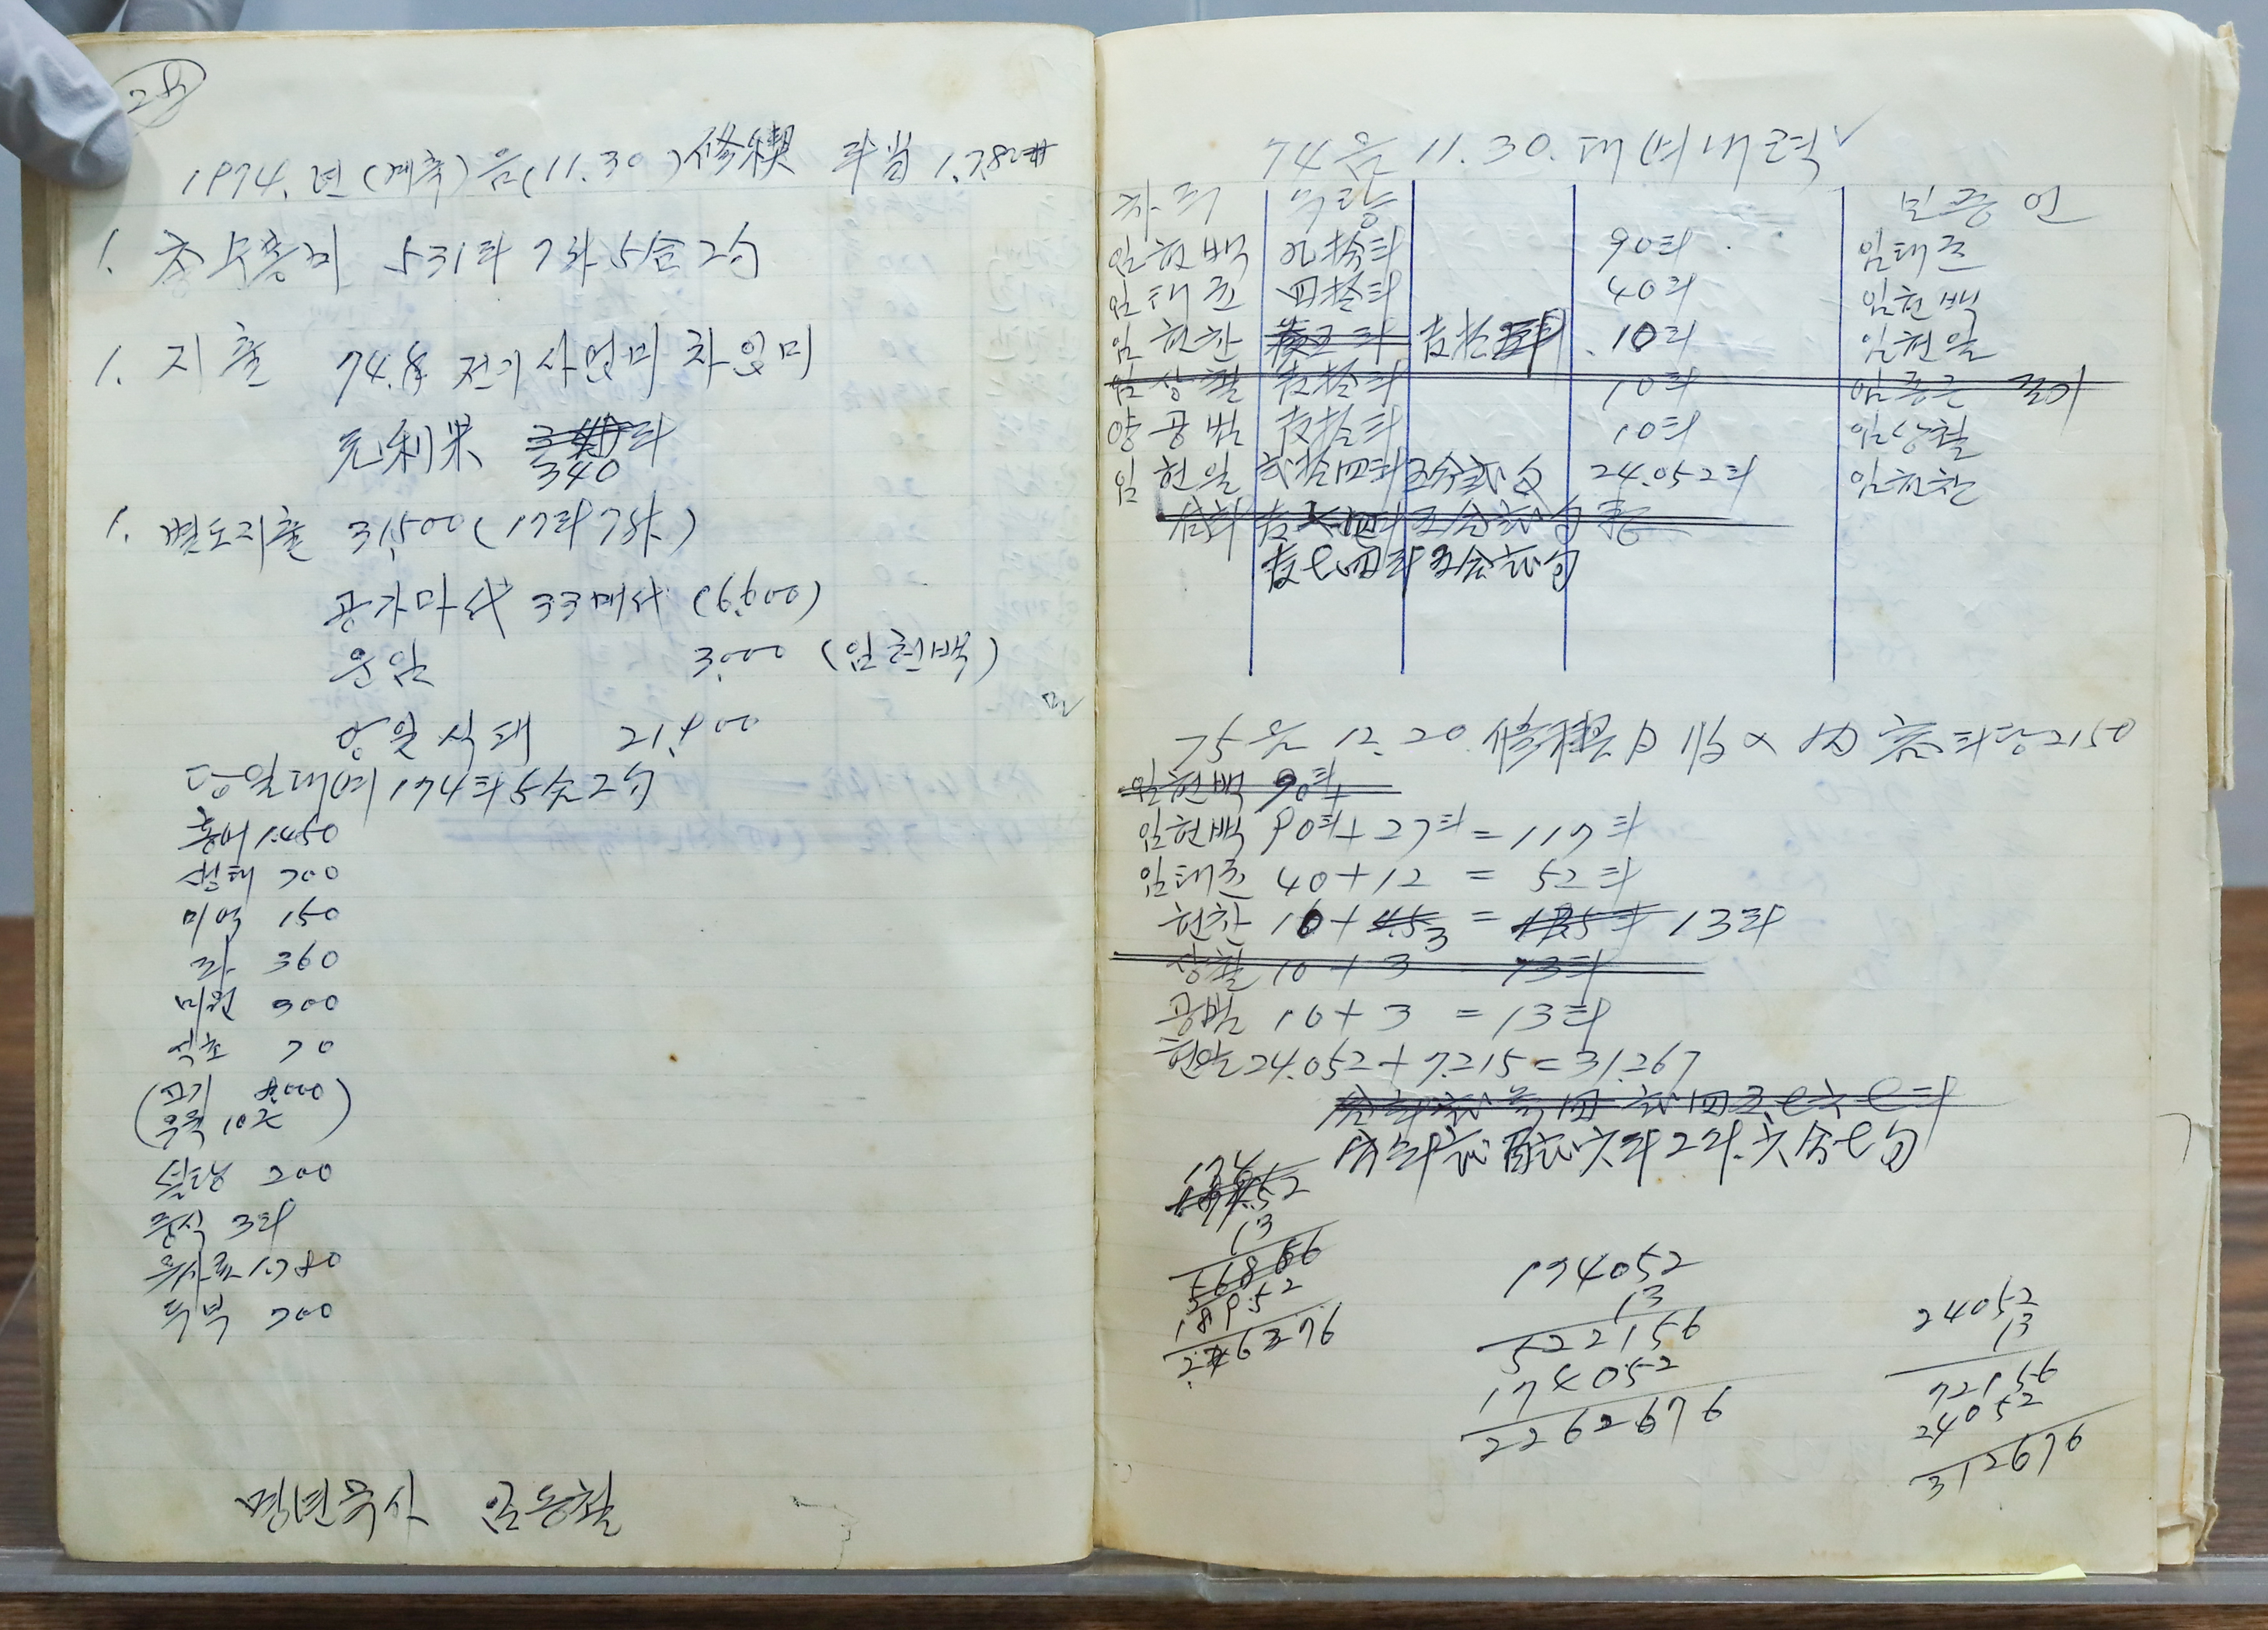 28
1974. 년 (계축) 음(11.30) 修稧 斗当 1,780
1. 총수종미 531斗 7升 5合 2勺
1. 지출 74.8 전기사업미 차입미
元利米 340斗
1. 별도지출 31,500 (17斗 7升)
공가마代 33매代 (6.600)
운임 3,000 (임현백)
당일 식대 21,900
당일대여 174斗 5合 2勺
홍어 1.450
명태 700
미역 150
파 360
미원 300
식초 70
(고기 8,000
우육 10근)
설탕 200
중식 3斗
유사료 1.780
두부 700
명년유사 임동철
74 음 11.30. 대여내력 ✓
차주 수량 보증인
임현백 九拾斗 90斗 임태준
임태준 四拾斗 40斗 임현백
임현찬 壹拾斗 10斗 임현일
임상철 壹拾斗 10斗 임종근
양공범 壹拾斗 10斗 임상철
임현일 弍拾四斗 五合弍勺 24.052斗 임현찬
壹七四斗 五合弍勺
75 음 12.20. 修稧 斗당 2150
임현백 90斗
임현백 90斗 + 27斗 = 117斗
임태준 40 + 12 = 52斗
현찬 10 + 3 = 13斗
상철 10 + 3 13斗
공범 10 + 3 = 13斗
현일 24.052 + 7.215 = 31.267
13
56856
18952
246376
174052
13
522156
174052
2262676
24052
13
72156
24052
312676